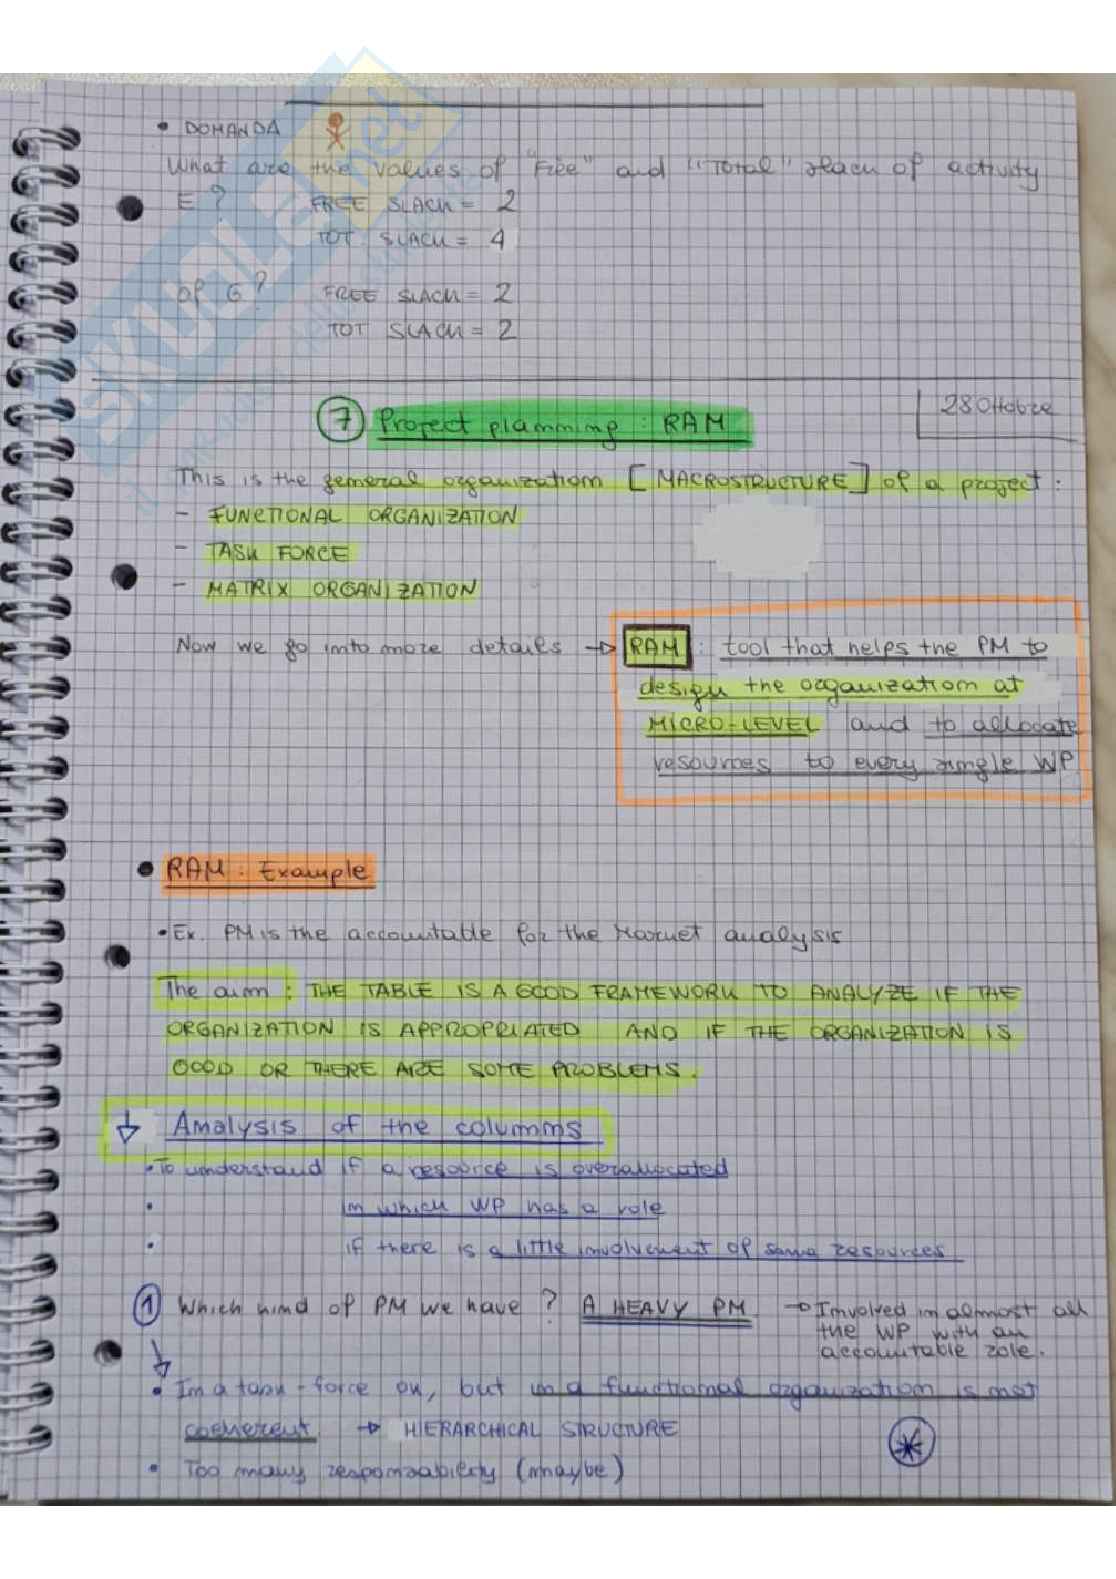 • DOMANDA
What are the values of "Free" and "Total" slack of activity
E? FREE SLACK = 2
TOT SLACK = 4
of G? FREE SLACK = 2
TOT SLACK = 2
28 Ottobre
7 Project planning: RAM
This is the general organization [MACROSTRUCTURE] of a project:
- FUNCTIONAL ORGANIZATION
- TASK FORCE
- MATRIX ORGANIZATION
Now we go into more details → RAM: tool that helps the PM to
design the organization at
MICRO-LEVEL and to allocate
resources to every single WP
• RAM: Example
• Ex. PM is the accountable for the Market analysis
The aim: THE TABLE IS A GOOD FRAMEWORK TO ANALYZE IF THE
ORGANIZATION IS APPROPRIATED AND IF THE ORGANIZATION IS
GOOD OR THERE ARE SOME PROBLEMS.
↓ Analysis of the columns
• To understand if a resource is overallocated
• in which WP has a role
• if there is a little involvement of some resources
1 Which kind of PM we have? A HEAVY PM → Involved in almost all
the WP with an
accountable role.
• In a task-force ok, but in a functional organization is not
coherent → HIERARCHICAL STRUCTURE
• Too many responsability (maybe)
SKUOLA.net